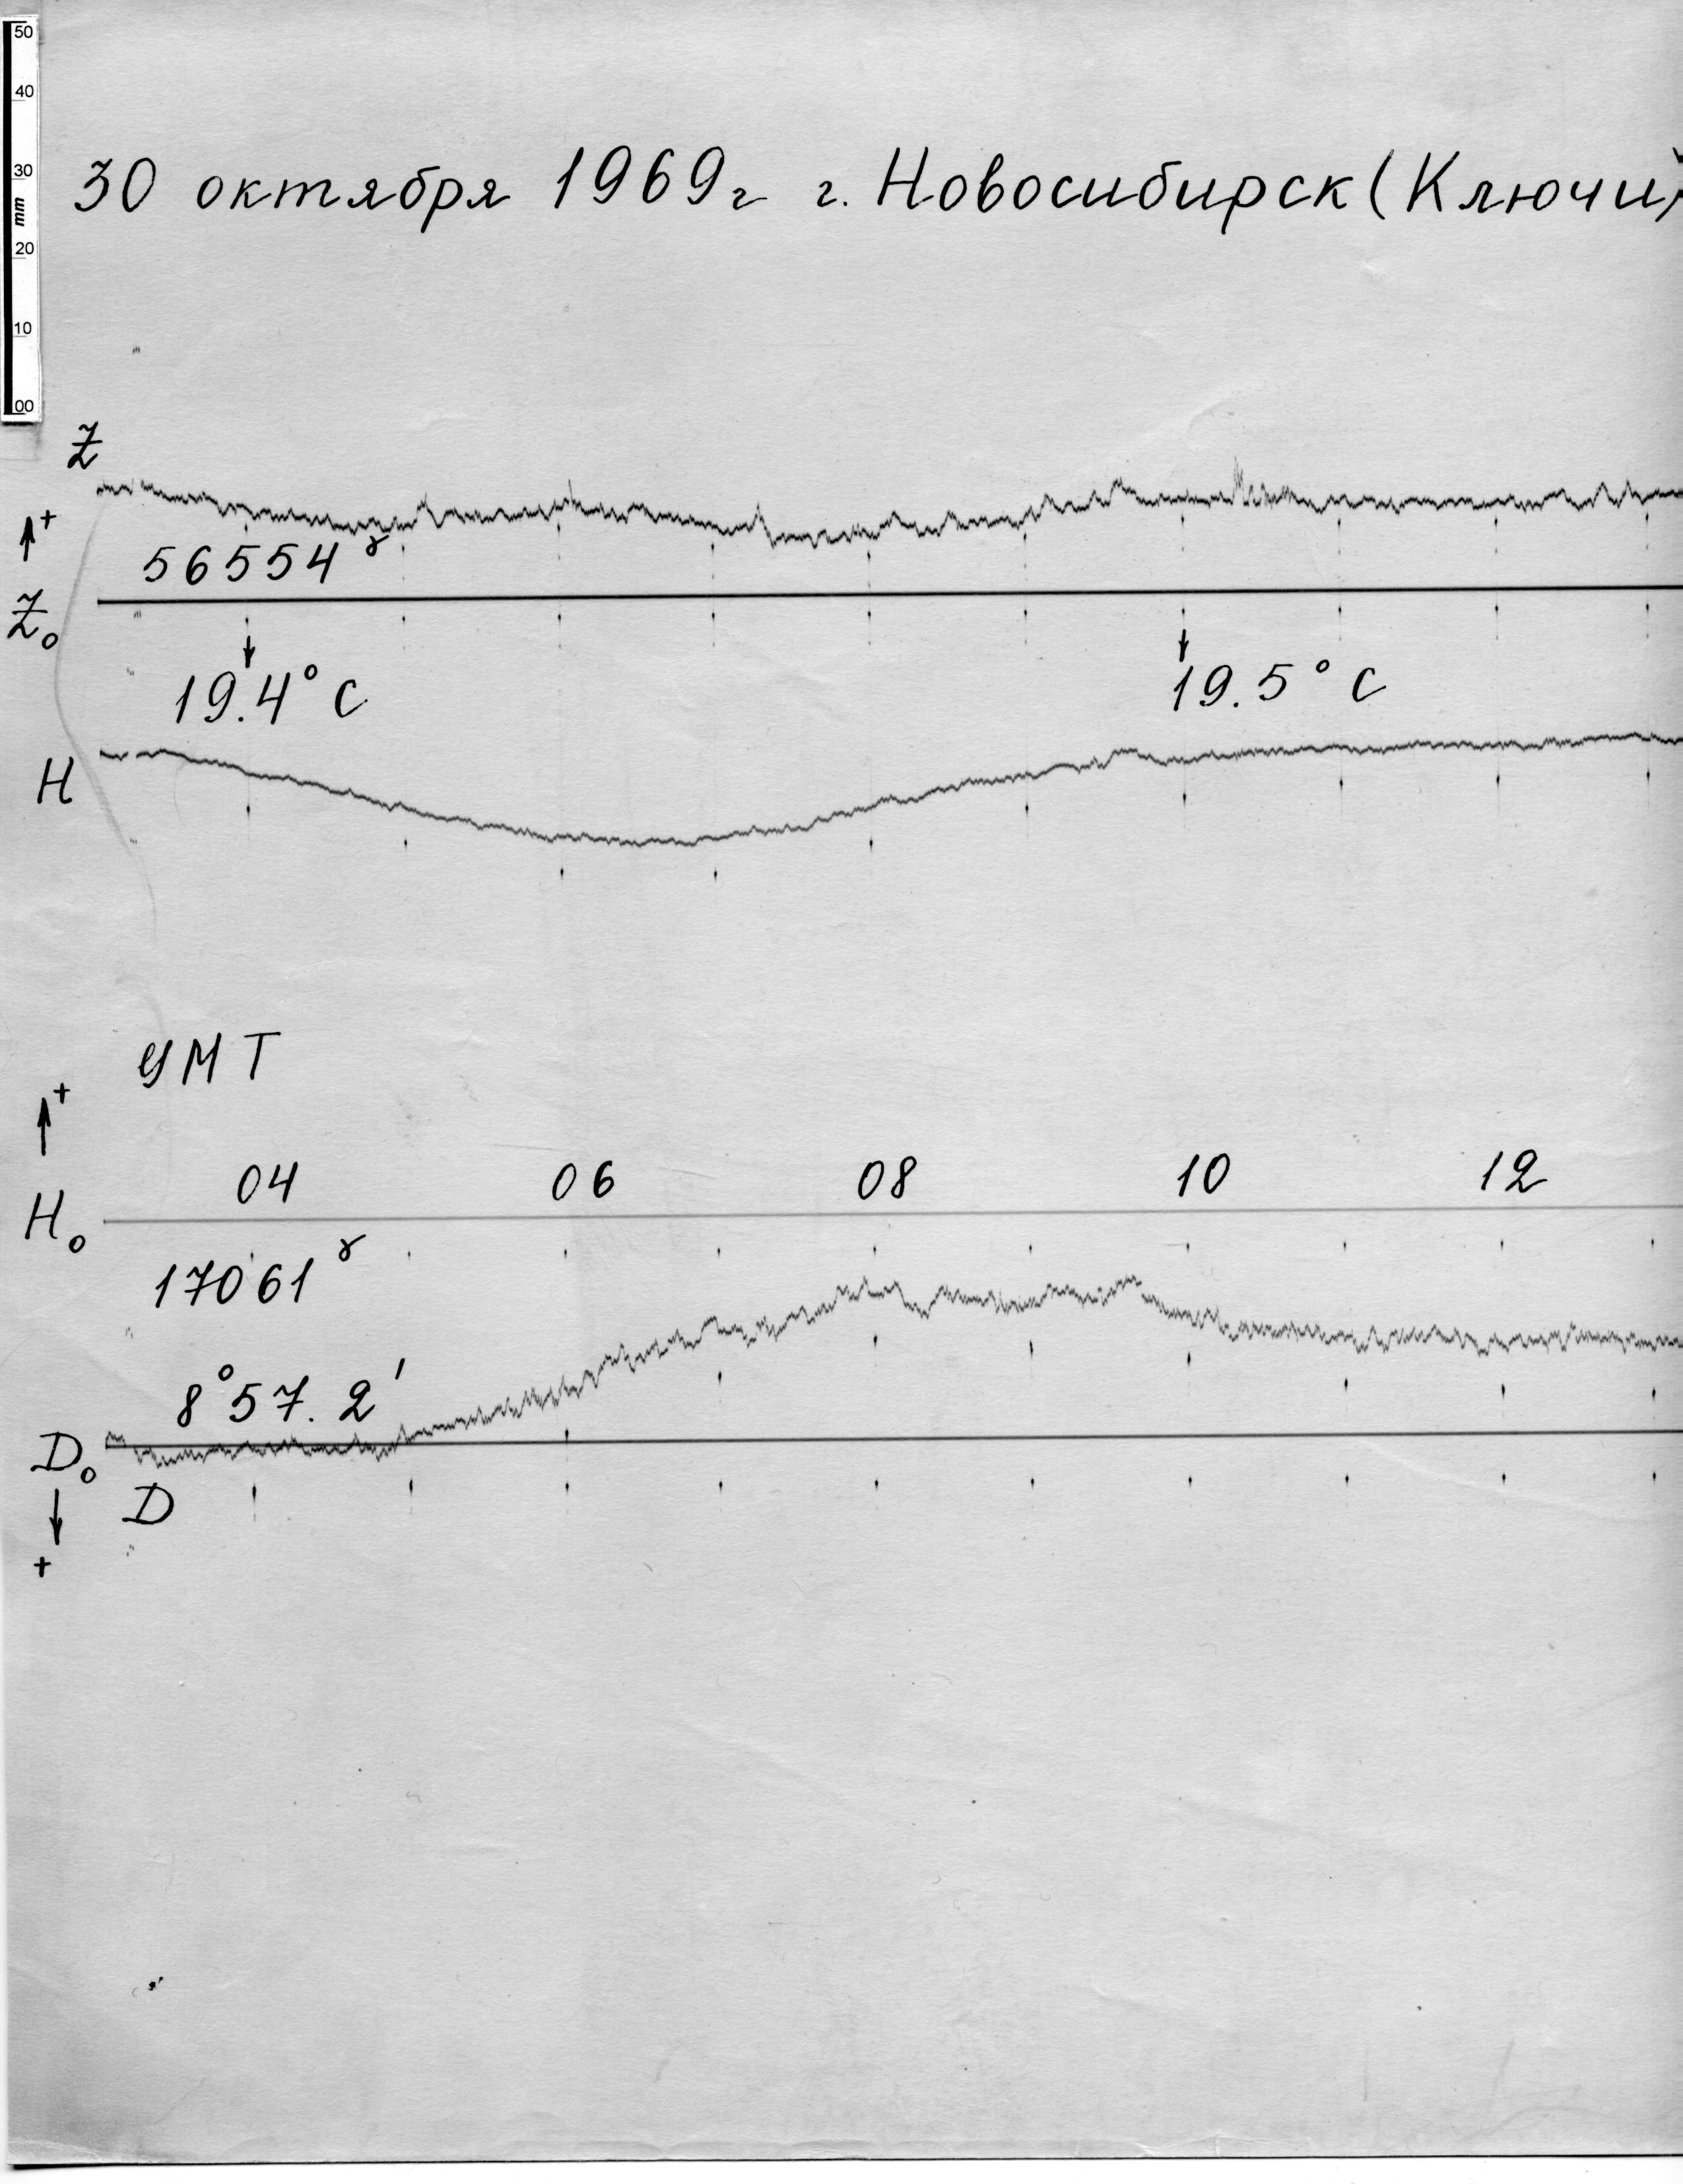 50
40
30
mm
20
10
00
30 октября 1969г г. Новосибирск (Ключи)
Z
+
56554 γ
Z₀
19.4° C
19.5° C
H
УМТ
+
04 06 08 10 12
H₀
17061 γ
8° 57. 2'
D₀
D
+